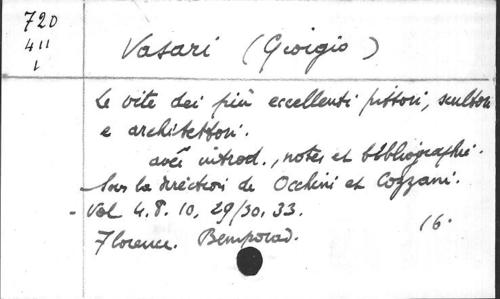 720
411
1
Vasari (Giorgio)
Le vite dei più eccellenti pittori, scultori
e architettori.
avec introd., notes et bibliographie.
Sous la direction de Occhini et Cozzani.
- Vol 4. 8. 10, 29/30. 33.
16.
Florence. Bemporad.